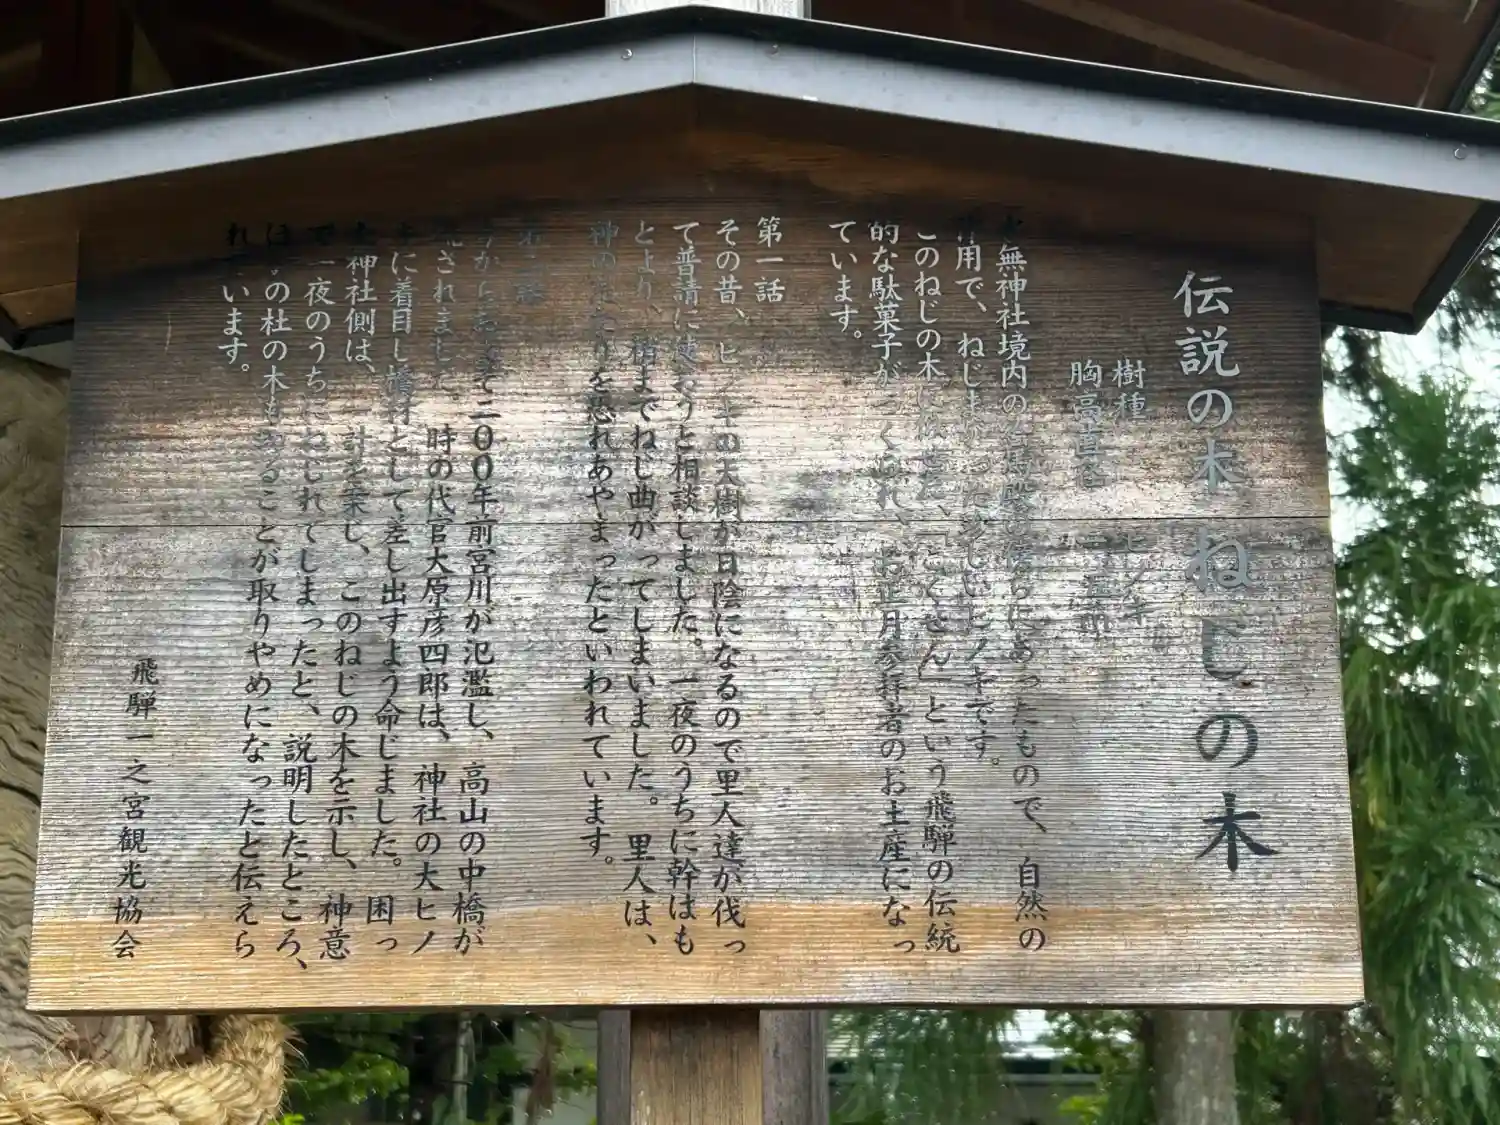 伝説の木 ねじの木
樹種 ヒノキ
胸高直径
水無神社境内の絵馬殿の傍らにあったもので、自然の
作用で、ねじまがった珍しいヒノキです。
このねじの木に 「こくせん」という飛騨の伝統
的な駄菓子がつくられ、お正月参拝者のお土産になっ
ています。
第一話
その昔、ヒノキの大樹が日陰になるので里人達が伐っ
て普請に使おうと相談しました。一夜のうちに幹はも
とより、梢までねじ曲がってしまいました。里人は、
神のたたりを恐れあやまったといわれています。
第二話
今からおよそ二〇〇年前宮川が氾濫し、高山の中橋が
流されました。時の代官大原彦四郎は、神社の大ヒノ
キに着目し橋材として差し出すよう命じました。困っ
た神社側は、一計を案じ、このねじの木を示し、神意
で一夜のうちにねじれてしまったと、説明したところ、
ほかの杜の木も ることが取りやめになったと伝えら
れています。
飛騨一之宮観光協会